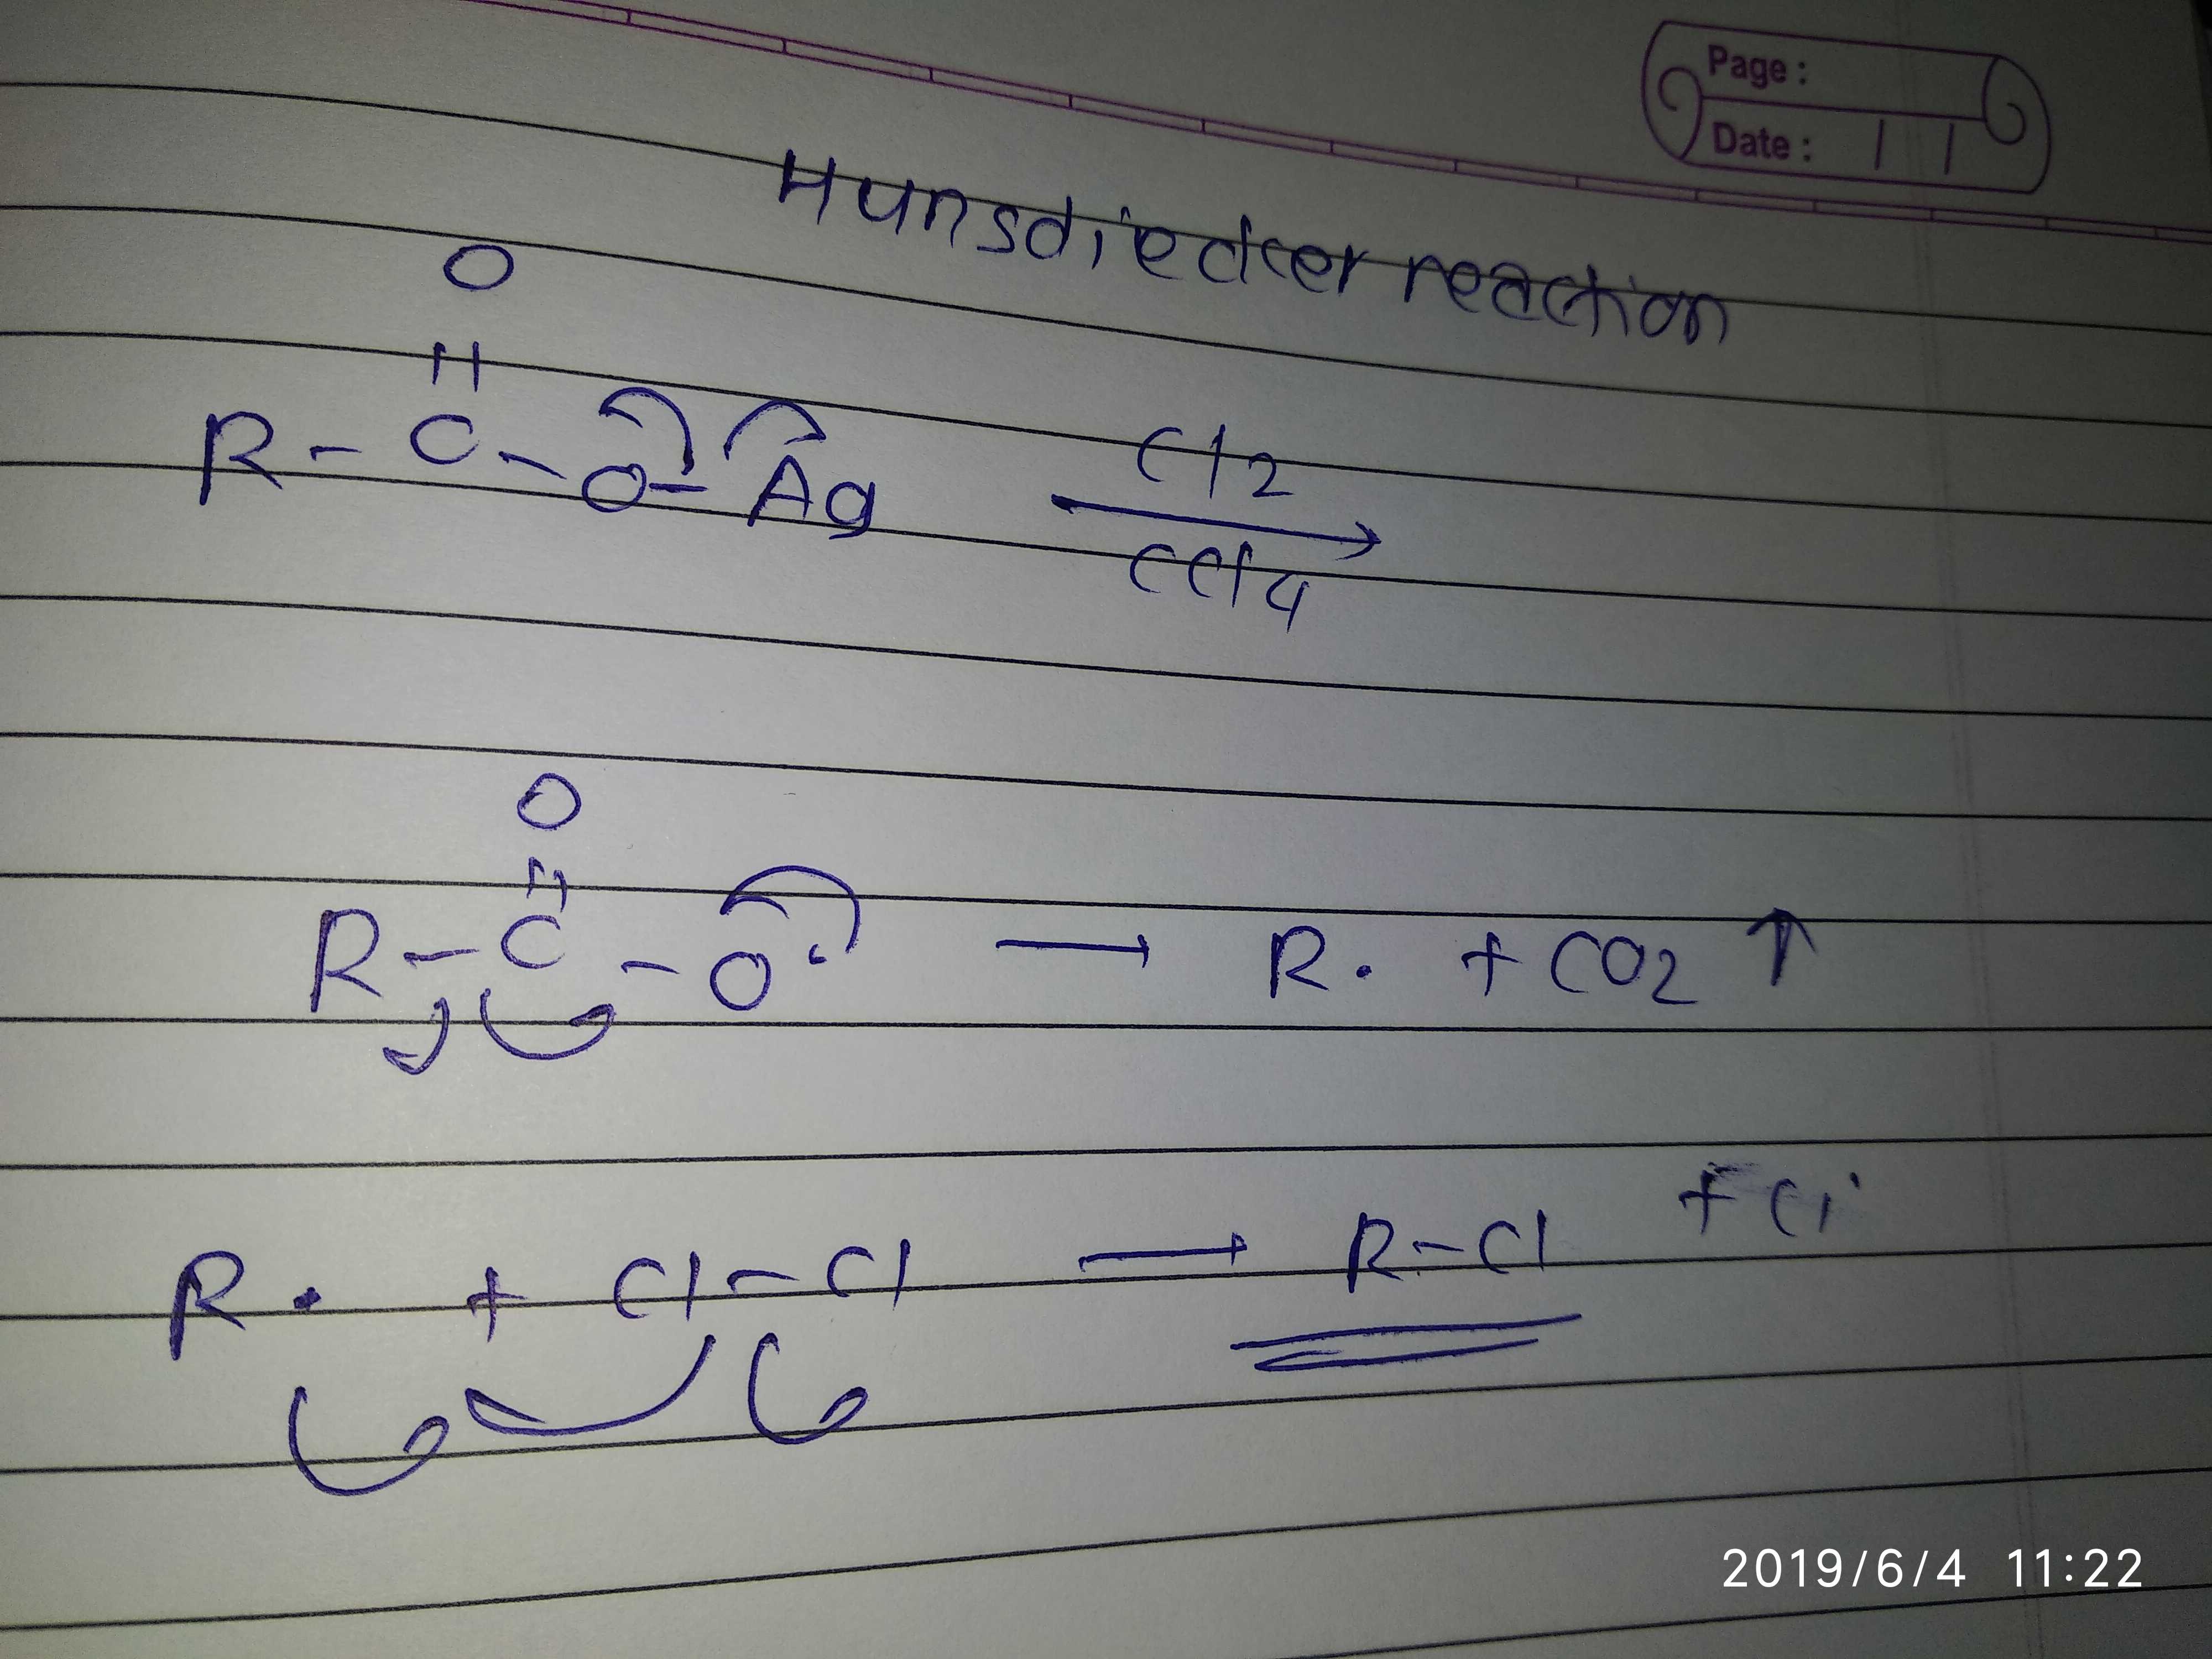 Page :
Date : | |
Hunsdiecker reaction
O
||
R - C - O - Ag
Cl2
CCl4
O
||
R - C - O· → R· + CO2 ↑
R· + Cl - Cl → R - Cl + Cl·
2019/6/4 11:22